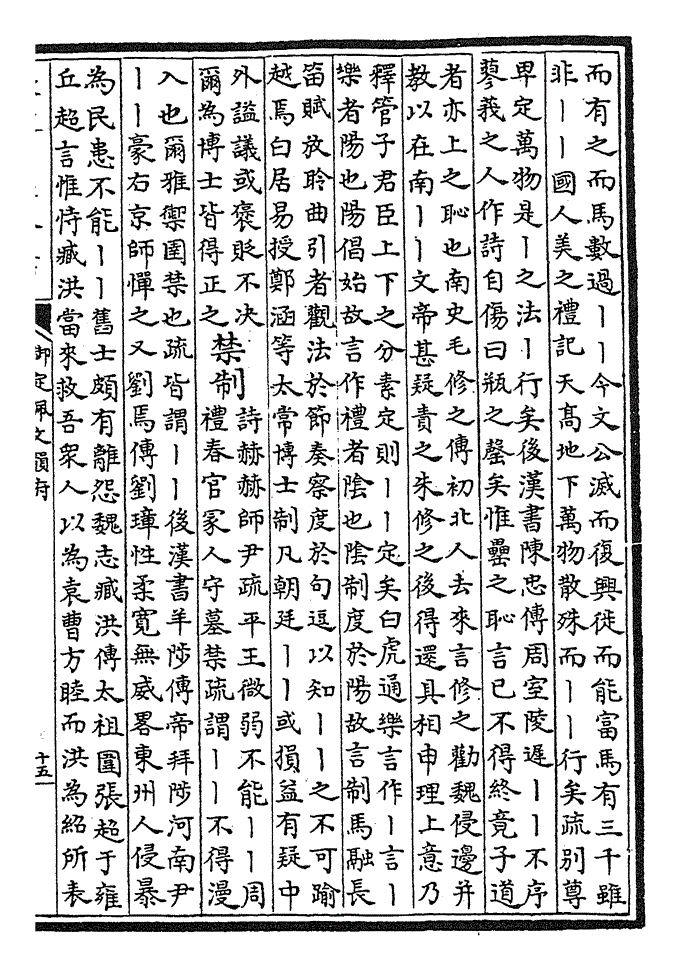 而有之而馬數過丨丨今文公滅而復興徙而能富馬有三千雖
非丨丨國人美之禮記天髙地下萬物散殊而丨丨行矣疏别尊
卑定萬物是丨之法丨行矣後漢書陳忠傳周室陵遲丨丨不序
蓼莪之人作詩自傷曰瓶之罄矣惟罍之恥言已不得終竟子道
者亦上之恥也南史毛修之傳初北人去來言修之勸魏侵邊并
教以在南丨丨文帝甚疑責之朱修之後得還具相申理上意乃
釋管子君臣上下之分素定則丨丨定矣白虎通樂言作丨言丨
樂者陽也陽倡始故言作禮者陰也陰制度於陽故言制馬融長
笛賦放聆曲引者觀法於節奏察度於句逗以知丨丨之不可踰
越焉白居易授鄭涵等太常博士制凡朝廷丨丨或損益有疑中
外謚議或褒貶不决
爾為博士皆得正之
禁制
詩赫赫師尹疏平王微弱不能丨丨周
禮春官冢人守墓禁疏謂丨丨不得漫
入也爾雅禦圉禁也疏皆謂丨丨後漢書羊陟傳帝拜陟河南尹
丨丨豪右京師憚之又劉馬傳劉璋性柔寛無威畧東州人侵暴
為民患不能丨丨舊士頗有離怨魏志臧洪傳太祖圍張超于雍
丘超言惟恃臧洪當來救吾衆人以為袁曹方睦而洪為紹所表
御定佩文韻府
十五